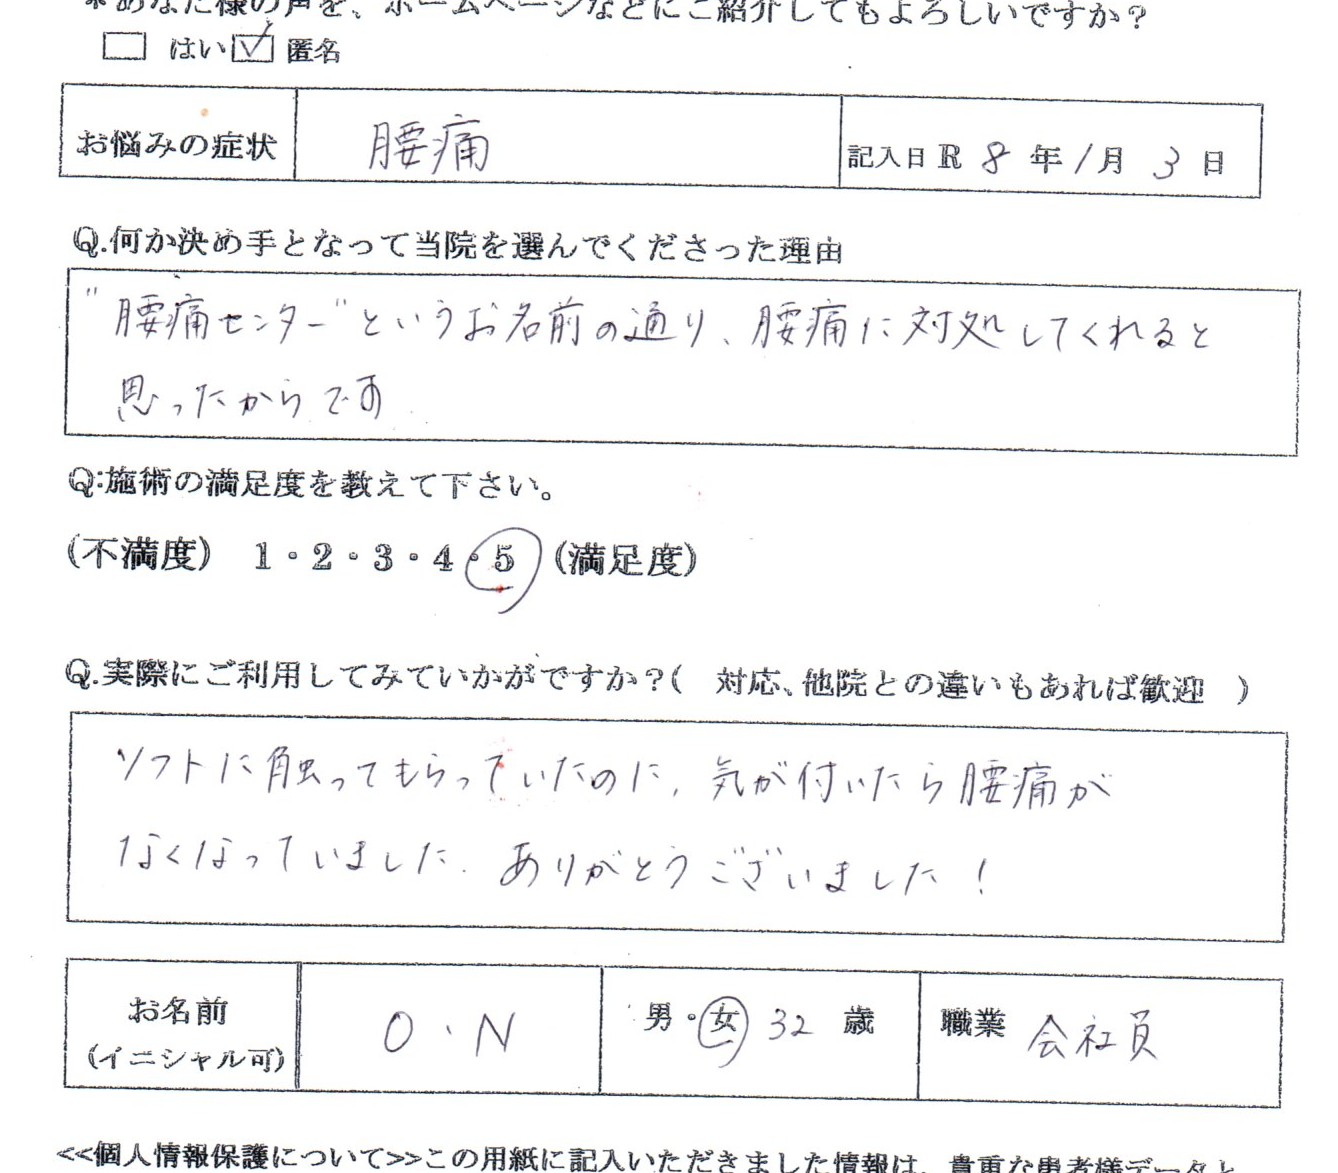 *あなた様の声を、ホームページなどにご紹介してもよろしいですか?
□ はい ☑ 匿名
お悩みの症状 腰痛 記入日 R 8 年 1 月 3 日
Q.何か決め手となって当院を選んでくださった理由
"腰痛センター"というお名前の通り、腰痛に対処してくれると
思ったからです
Q:施術の満足度を教えて下さい。
(不満度) 1・2・3・4・5 (満足度)
Q.実際にご利用してみていかがですか?( 対応、他院との違いもあれば歓迎 )
ソフトに触ってもらっていたのに、気が付いたら腰痛が
なくなっていました. ありがとうございました!
お名前 O.N 男・女 32 歳 職業 会社員
(イニシャル可)
<<個人情報保護について>>この用紙に記入いただきました情報は、貴重な患者様データと